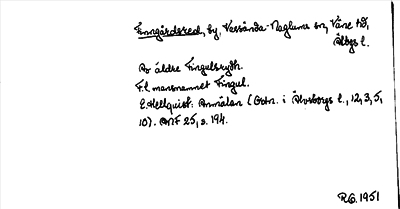 Finngårdsred, by, Vassända-Naglums sn, Väne hd,
Älvsbgs l.
Av äldre Fingulsrydh.
F.l mansnamnet Fingul.
E. Hellquist: Anmälan (Ortn. i Älvsborgs l., 12, 3, 5,
10). ANF 25, s. 194.
R.G. 1951